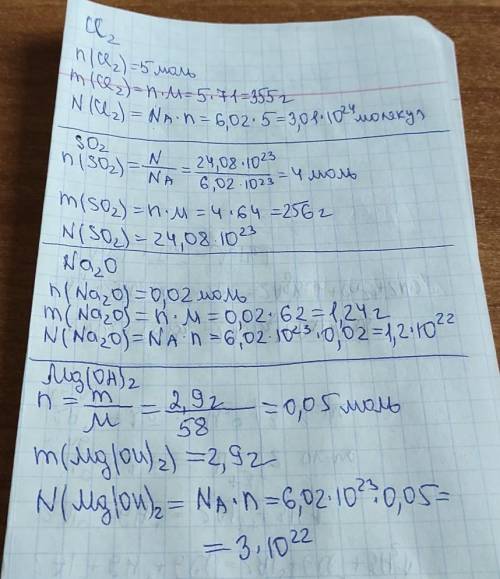 Cl₂
n(Cl₂)=5 моль
m(Cl₂)=n·M=5·71=355г
N(Cl₂)=NA·n=6,02·5=3,01·10²⁴молекул
SO₂
n(SO₂)=N/NA=24,08·10²³/6,02·10²³=4 моль
m(SO₂)=n·M=4·64=256г
N(SO₂)=24,08·10²³
Na₂O
n(Na₂O)=0,02 моль
m(Na₂O)=n·M=0,02·62=1,24г
N(Na₂O)=NA·n=6,02·10²³·0,02=1,2·10²²
Mg(OH)₂
n=m/M=2,9г/58=0,05 моль
m(Mg(OH)₂)=2,9г
N(Mg(OH)₂=NA·n=6,02·10²³·0,05=
=3·10²²